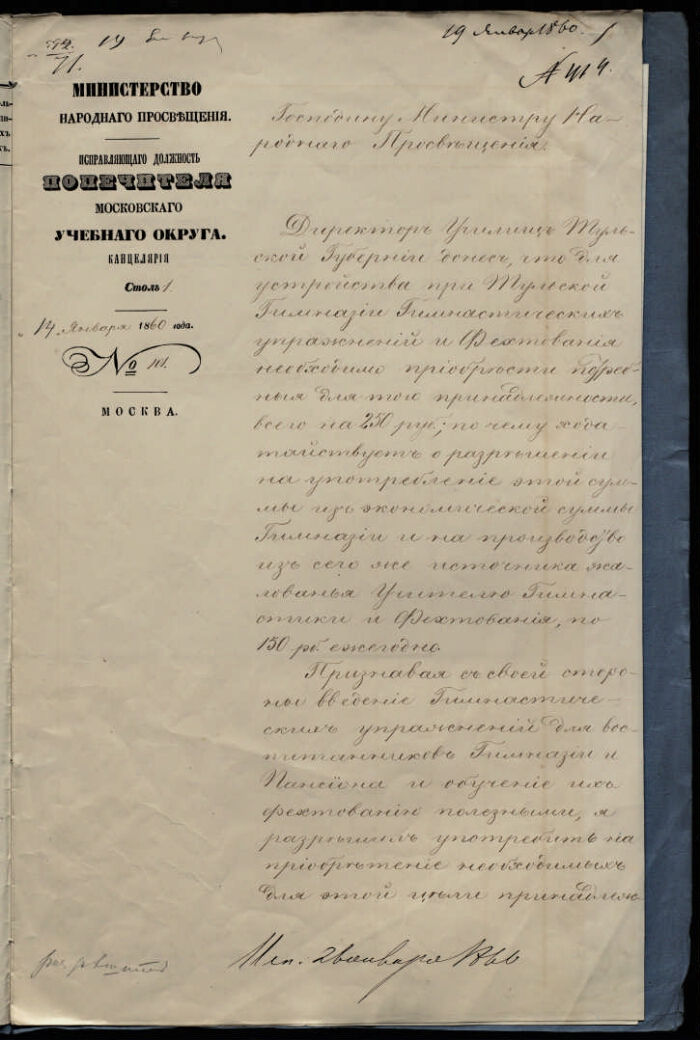 19 Январ 1860.
71.
МИНИСТЕРСТВО
НАРОДНАГО ПРОСВѢЩЕНІЯ.
ИСПРАВЛЯЮЩАГО ДОЛЖНОСТЬ
ПОПЕЧИТЕЛЯ
МОСКОВСКАГО
УЧЕБНАГО ОКРУГА.
КАНЦЕЛЯРІЯ
Столъ 1.
14 Января 1860 года.
№ 101.
МОСКВА.
Господину Министру На-
роднаго Просвѣщенія.
Директоръ Училищъ Туль-
ской Губерніи донесъ, что для
устройства при Тульской
Гимназіи Гимнастическихъ
упражненій и Фехтованія
необходимо пріобрѣсти потреб-
ныя для того принадлежности,
всего на 250 руб; по чему хода-
тайствуетъ о разрѣшеніи
на употребленіе этой сум-
мы изъ экономической суммы
Гимназіи и на производство
изъ сего же источника жа-
лованья Учителю Гимна-
стики и Фехтованія, по
150 рб. ежегодно.
Признавая съ своей сторо-
ны введеніе Гимнастиче-
скихъ упражненій для вос-
питанниковъ Гимназіи и
Пансіона и обученіе ихъ
фехтованію полезными, я
разрѣшилъ употребить на
пріобрѣтеніе необходимыхъ
для этой цѣли принадлеж
Исп. января